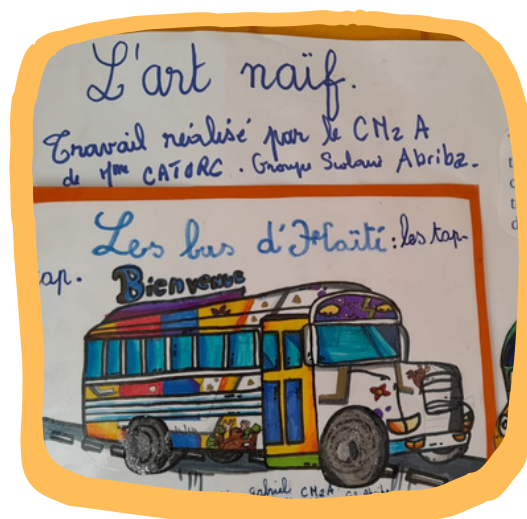 L'art naïf.
Travail réalisé par le CM2 A
de Mme CATORC. Groupe Scolaire Abriba.
Les bus d'Haïti : les tap-
tap.
Bienvenue
gabriel CM2A